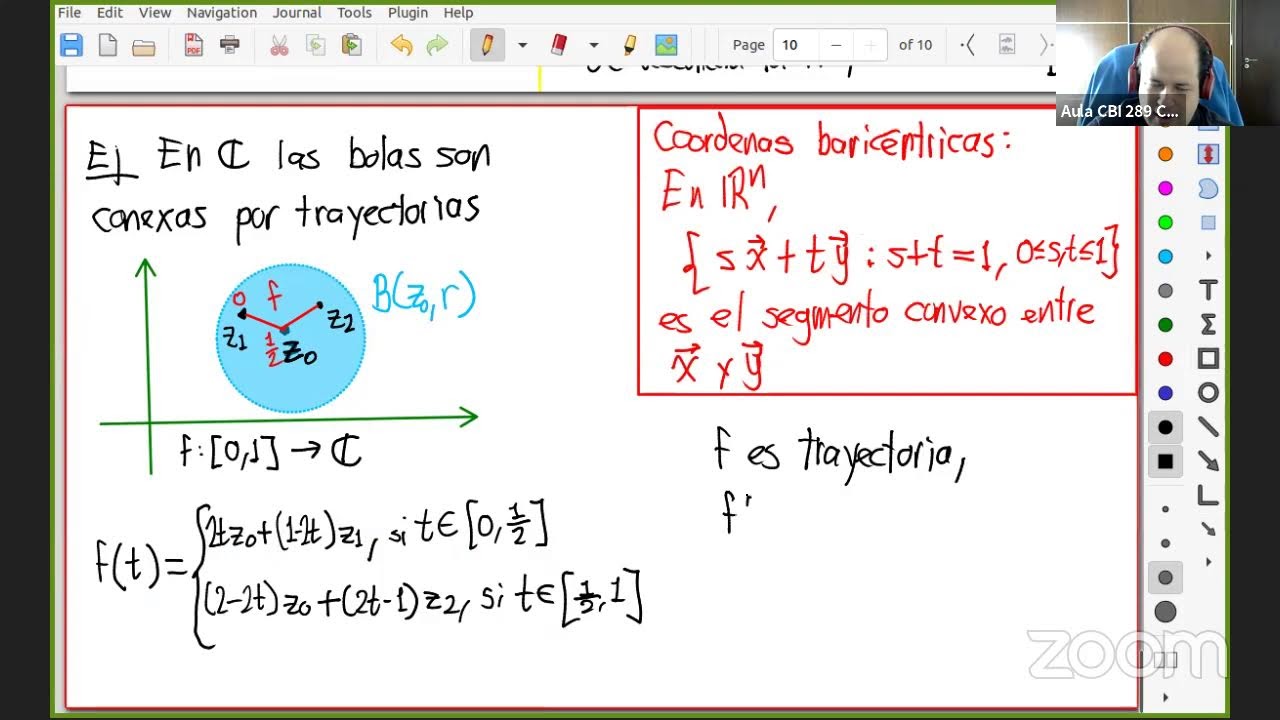 File Edit View Navigation Journal Tools Plugin Help
Page 10 of 10
Aula CBI 289 C...
Ej En ℂ las bolas son
conexas por trayectorias
f
0
z1
z2
1/2
z0
B(z0,r)
f:[0,1]→ℂ
f(t)={2tz0+(1-2t)z1, si t∈[0,1/2]
(2-2t)z0+(2t-1)z2, si t∈[1/2,1]
Coordenas baricéntricas:
En ℝⁿ,
{s x⃗ + t y⃗ : s+t=1, 0≤s,t≤1}
es el segmento convexo entre
x⃗ y y⃗
f es trayectoria,
f
zoom